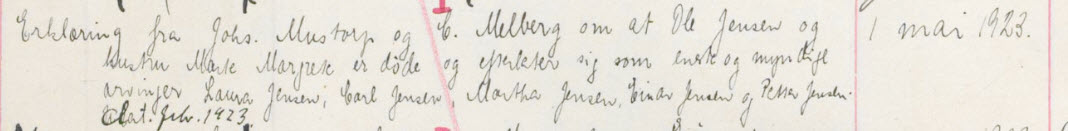 Erklæring fra Johs. Mustorp og C. Melberg om at Ole Jensen og 1 mai 1923.
hustru Marte Margrete er døde og efterlater sig som eneste og myndige
arvinger Laura Jensen, Carl Jensen, Martha Jensen, Einar Jensen og Petter Jensen.
Dat. febr. 1923.